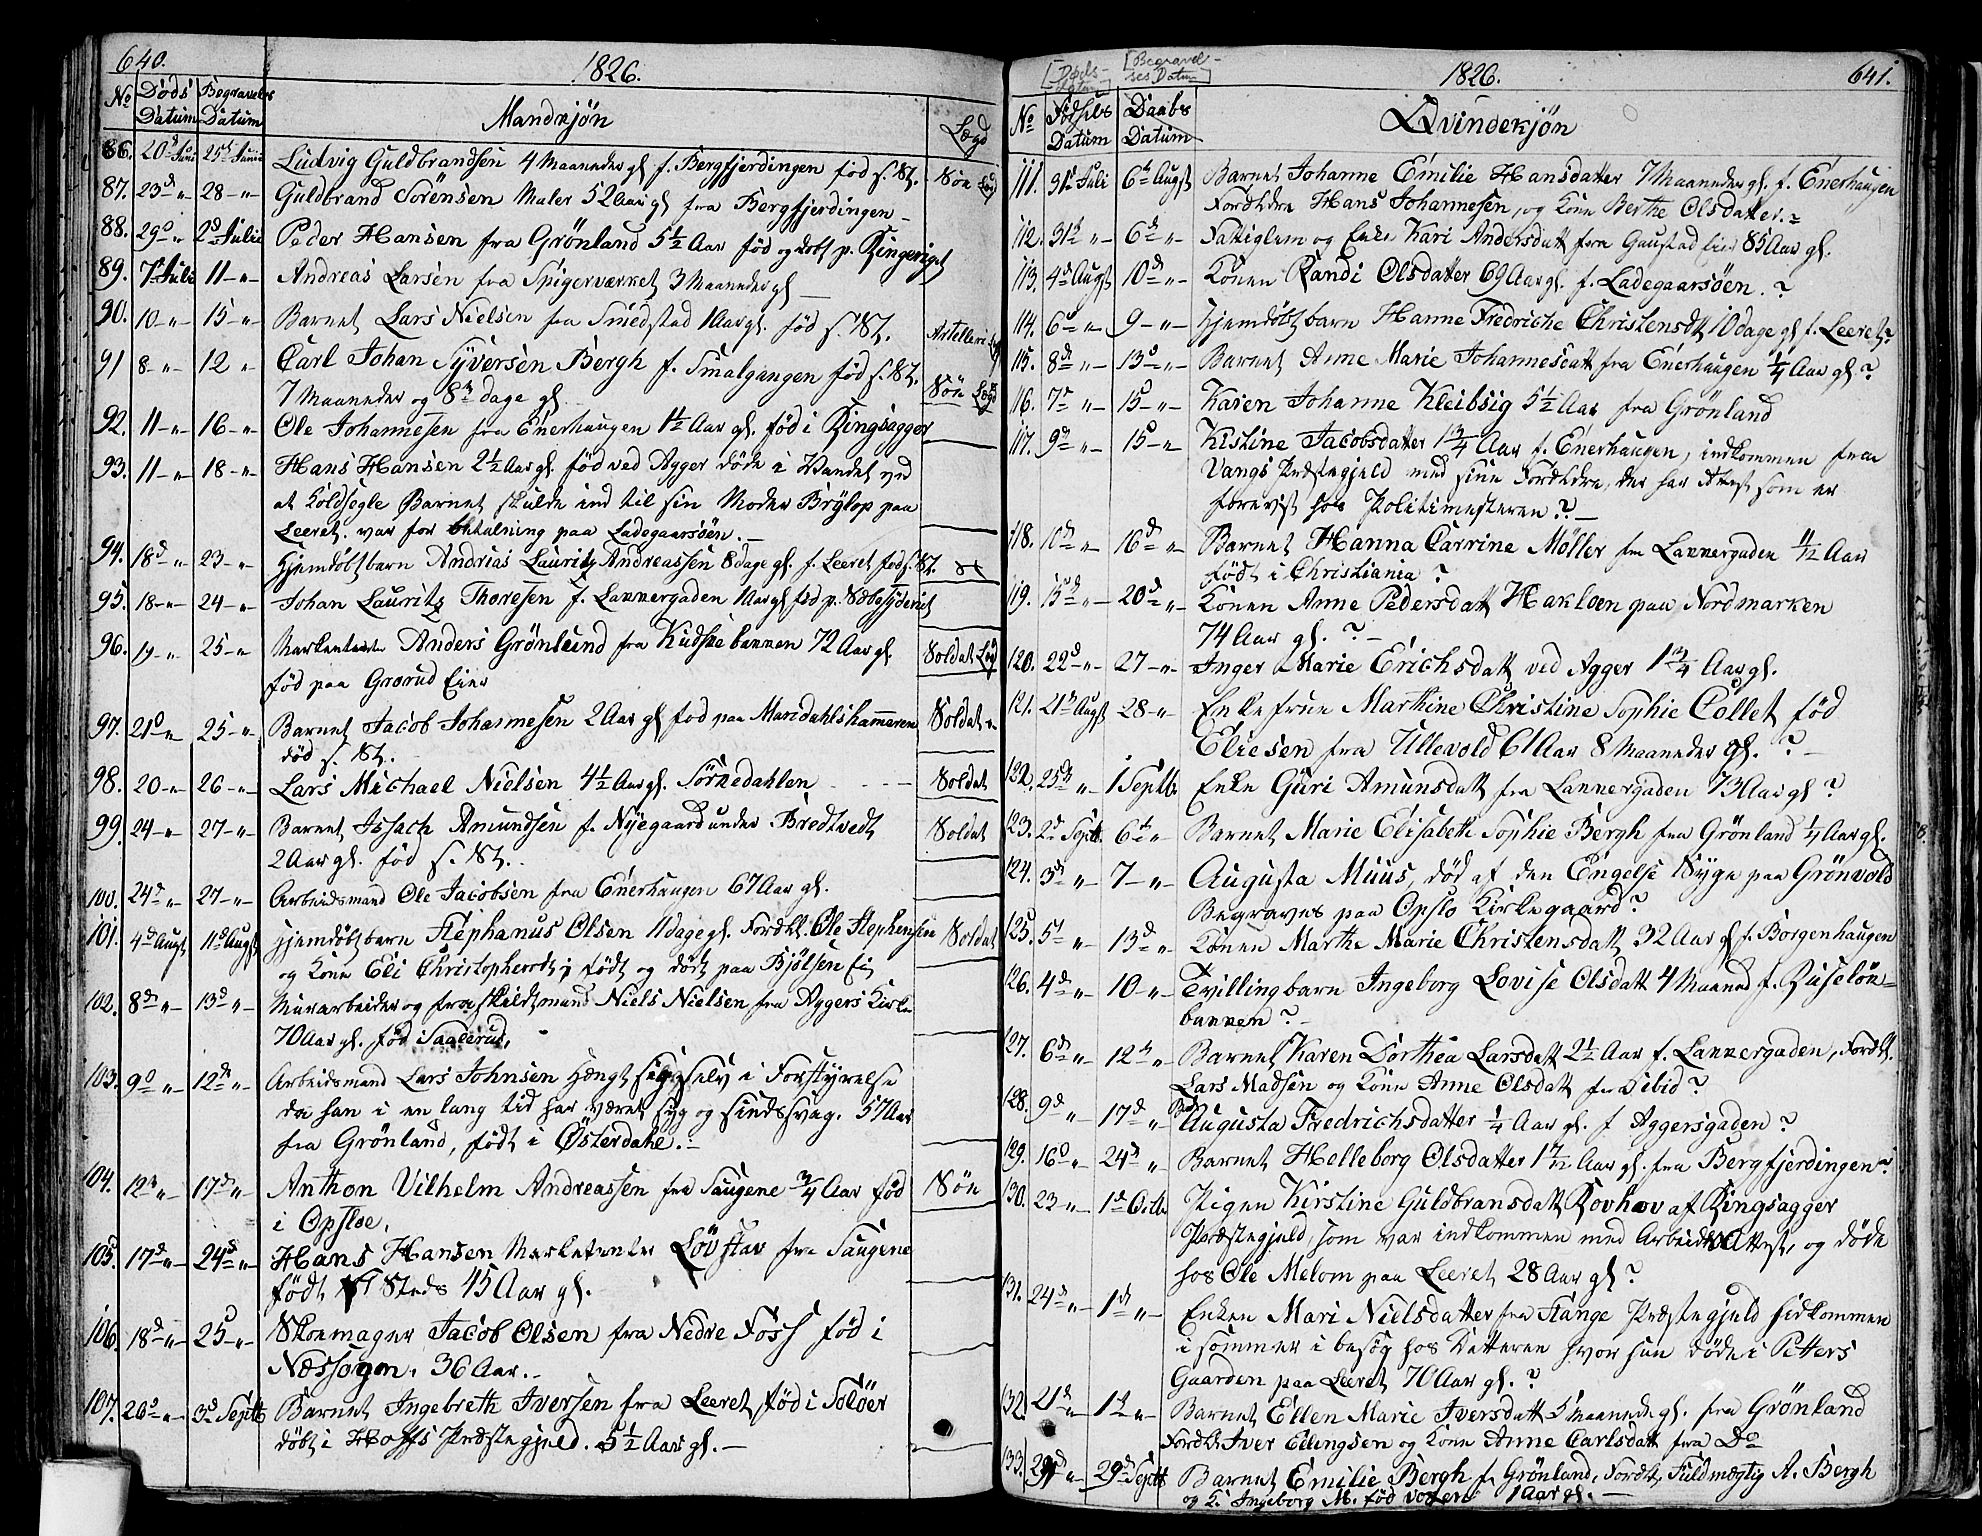 640.
1826.
No Døds Datum Begravelses Datum Mandkjøn Lægd
86. 20d Juni 25d Junii Ludvig Guldbrandsen 4 Maaneder gl. f. Bergfjerdingen fød s. St. Søn Lægd
87. 23d „ 28 „ Guldbrand Sørensen Maler 52 Aar gl fra Bergfjerdingen
88. 29d „ 2d Julii Peder Hansen fra Grønland 5½ Aar fød og døbt p. Ringeriget
89. 7d Juli 11 „ Andreas Larsen fra Spigerværket 3 Maaneder gl
90. 10 „ 15 „ Barnet Lars Nielsen fra Smedstad 1 Aar gl. fød s. St. Artelleri
91 8 „ 12 „ Carl Johan Syversen Bergh f. Smalgangen fød s. St.
7 Maaneder og 8te dage gl. Søn Lægd
92. 11 „ 16 „ Ole Johannesen fra Enerhaugen 1½ Aar gl. fød i Ringsagger
93. 11 „ 18 „ Hans Hansen 2½ Aar gl. fød ved Agger døde i Vandet ved
at Koldsegle Barnet skulde ind til sin Moder Brylop paa
Leeret. var for betalning paa Ladegaarsøen.
94. 18d „ 23 „ Hjemdøbt barn Andrias Lauritz Andreassen 8 dage gl. f. Leeret fød s. St.
95. 18 „ 24 „ Johan Lauritz Thoresen f. Lannergaden 1 Aar gl fød p. Næbsyderiet
96. 19 „ 25 „ Markententer Anders Grønlund fra Rudsøebannen 72 Aar gl. Soldat Lægd
fød paa Grorud Eier
97. 21d „ 25 „ Barnet Jacob Johannesen 2 Aar gl fød paa Maridahlshammeren Soldat
død s. St.
98. 20 „ 26 „ Lars Michael Nielsen 4½ Aar gl. Sørkedahlen Soldat
99. 24 „ 27 „ Barnet Issach Amundsen f. Nyegaard under Bredtvedt Soldat
2 Aar gl. fød s. St.
100. 24d „ 27 „ Arbeidsmand Ole Jacobsen fra Enerhaugen 67 Aar gl.
101. 4d Augst 11d Augst Hjemdøbt barn Stephanus Olsen 11 dage gl. Fordhl. Ole Stephensen Soldat
og Kone Eli Christophersdt født og død paa Bjølsen Ei
102. 8d „ 13d „ Murarbeider og fraskildtmand Niels Nielsen fra Aggers Kirke
70 Aar gl. fød i Saacerud,
103. 9d „ 12d „ Arbeidsmand Lars Johnsen hængt sig selv i Forstyrelse
da han i en lang tid har været syg og sindssvag. 57 Aar
fra Grønland, født i Østerdahl.
104. 12t „ 17d „ Anthon Vilhelm Andreassen fra Saugene ¾ Aar fød Søn
i Opsloe.
105. 17d „ 24d „ Hans Hansen Marketenter Løvstav fra Saugene
født s. Steds 45 Aar gl.
106. 18d „ 25d „ Skomager Jacob Olsen fra Nedre Foss fød i
Næssogn. 36 Aar.
107. 26d „ 3d Septb Barnet Ingebreth Iversen fra Leeret, fød i Soløer
døbt i Hoffs Præstegjeld. 5½ Aar gl.
641.
1826.
[Døds-Datum] [Begravelses Datum]
No Fødsels Datum Daabs Datum Qvindekjøn
111. 31d Juli 6te Augst Barnet Johanne Emilie Hansdatter 7 Maaneder gl. f. Enerhaugen
Fordhldre Hans Johannesen, og Kone Berthe Olsdatter.
112. 31t „ 6d „ Fattiglem og Enke Kari Andersdatt fra Gaustad Eier 85 Aar gl.
113. 4d Augst 10d „ Konen Randi Olsdatter 69 Aar gl. f. Ladegaarsøen. ?
114. 6d „ 9 „ Hjemdøbt barn Hanne Fredriche Christensdtt 10 dage gl f. Leeret ?
115. 8d „ 13d „ Barnet Anne Marie Johannesdatt fra Enerhaugen ¼ Aar gl ?
116. 7d „ 15d „ Karen Johanne Kleibsig 5½ Aar fra Grønland
117. 9d „ 15d „ Kistine Jacobsdatter 1¾ Aar f. Enerhaugen, indkommen fra
Vangs Præstegjeld med sine Fordhdre, der har Attest som er
forevist hos Politimesteren ?
118. 10d „ 16d „ Barnet Hanna Carrine Møller fra Lannergaden 1½ Aar
født i Christiania ?
119. 15d „ 20d „ Konen Anne Pedersdatt Hakloen paa Nordmarken
74 Aar gl. ?
120. 22d „ 27 „ Inger Marie Erichsdatt ved Agger 1¾ Aar gl.
121. 21d Augst 28 „ Enkefrue Marthine Christine Sophie Collet fød
Eliesen fra Ullevold 61 Aar 8 Maaneder gl. ?
122. 25d „ 1 Septb. Enke Guri Amunsdatt fra Lannergaden 73 Aar gl ?
123. 2d Septb. 6te „ Barnet Marie Elisabeth Sophie Bergh fra Grønland ¼ Aar gl.
124. 3d „ 7 „ Augusta Muus, død af den Engelse Syge paa Grønvold
Begraves paa Opslo Kirkegaard ?
125. 5t „ 13d „ Konen Marthe Marie Christensdatt 32 Aar gl f. Borgenhaugen
126. 4d „ 10 „ Tvillingbarn Ingeborg Lovise Olsdatt 4 Maaned f. Ruseløn-
bannen ?
127. 6d „ 12t „ Barnet Karen Dorthea Larsdatt 2½ Aar f. Lannergaden, Fordt.
Lars Madsen og Kone Anne Olsdatt fra ibid ?
128. 9d „ 17d „ Augusta Fredrichsdatter ¼ Aar gl. f Aggersgaden ?
129. 16d „ 24d „ Barnet Helleborg Olsdatter 1 7/12 Aar gl. fra Bergfjerdingen
130. 23 „ 1d Octb. Pigen Kirstine Guldbransdatt Rovhov af Ringsagger
Præstegjeld, som var indkommen med Arbeids Attest, og døde
hos Ole Melom paa Leeret 28 Aar gl ?
131. 24d „ 1d „ Enken Mari Nielsdatter fra Stange Præstegjeld hidkommen
i sommer i besøg hos Datteren hvor hun døde i Petters
Gaarden paa Leeret 70 Aar gl. ?
132. 21d „ 1t „ Barnet Ellen Marie Iversdatt 5 Maaneder gl. fra Grønland
Fordhl. Iver Ellingsen og Kone Anne Carlsdatt fra Do
133. 24d „ 29d Septb Barnet Emilie Bergh f. Grønland, Fordt, Fuldmægtig A. Bergh
og K. Ingeborg M. fød 1 Aar gl.